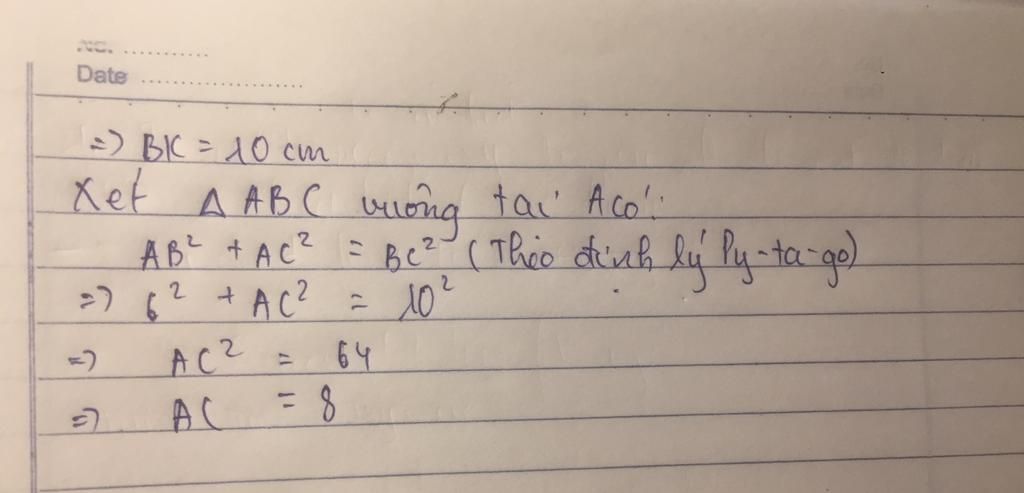 No. ...........
Date .......................
=> BK = 10 cm
Xét Δ ABC vuông tại A có :
AB² + AC² = BC² (Theo định lý Py-ta-go)
=> 6² + AC² = 10²
=> AC² = 64
=> AC = 8